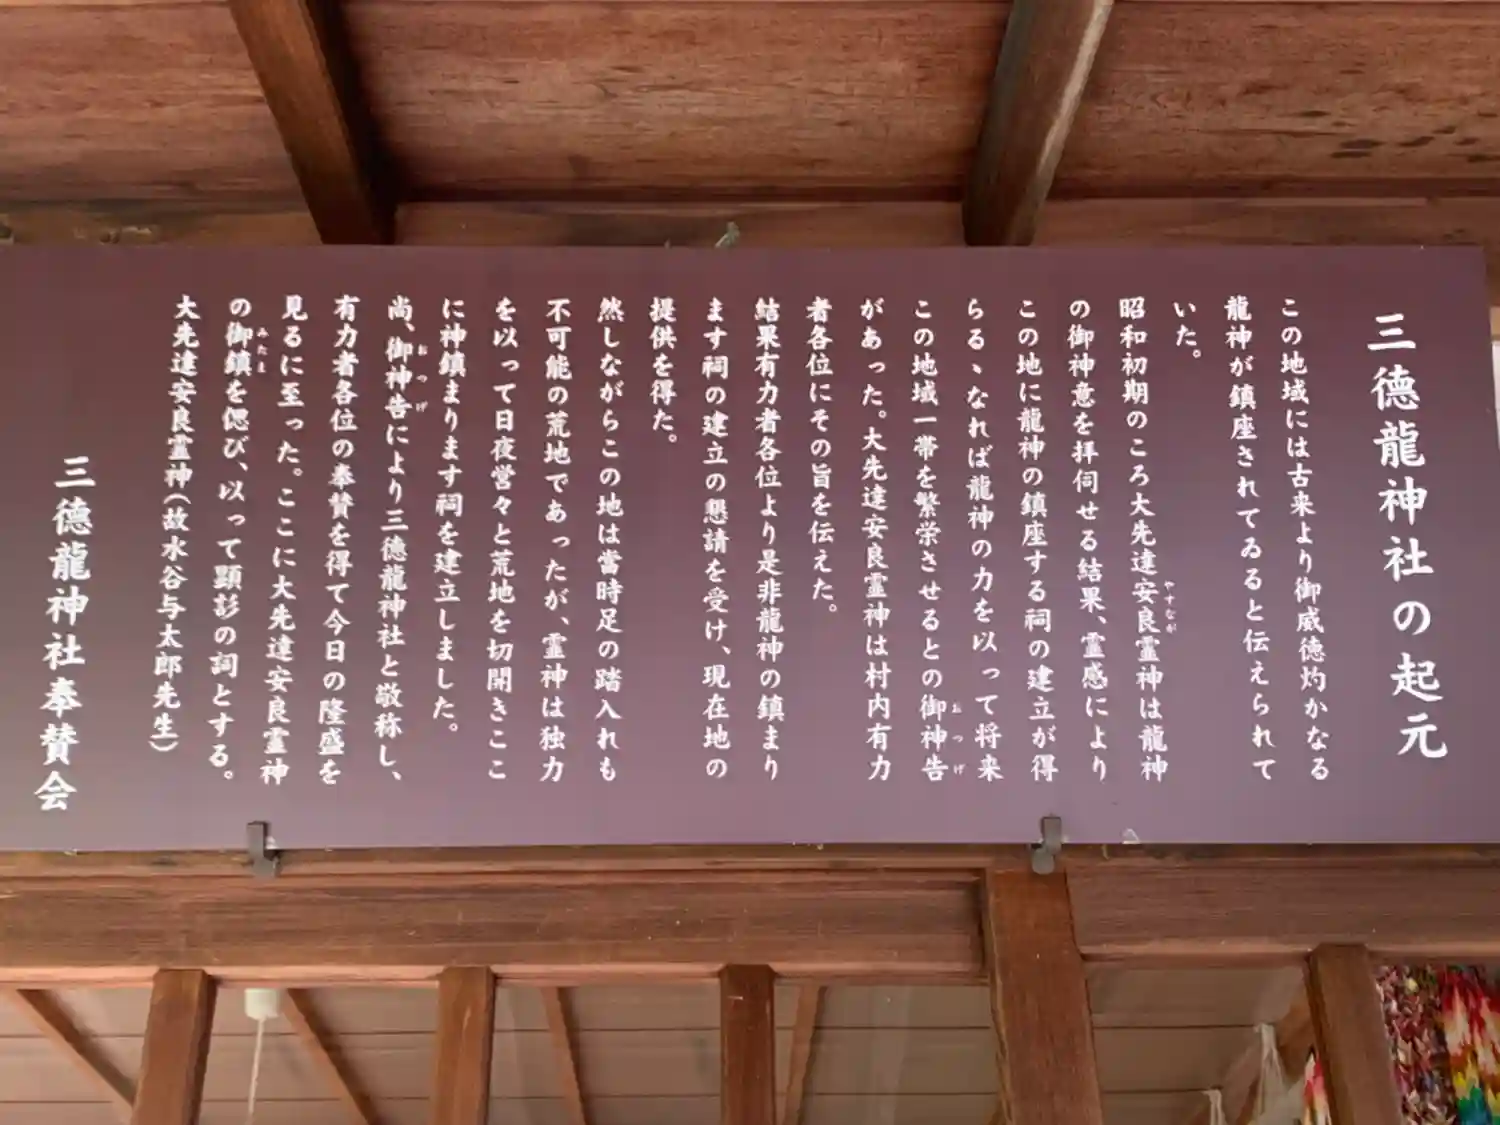 三徳龍神社の起元
この地域には古来より御威徳灼かなる
龍神が鎮座されてゐると伝えられて
いた。
昭和初期のころ大先達安良霊神は龍神
やすなが
の御神意を拝伺せる結果、霊感により
この地に龍神の鎮座する祠の建立が得
らるゝなれば龍神の力を以って将来
この地域一帯を繁栄させるとの御神告
おつげ
があった。大先達安良霊神は村内有力
者各位にその旨を伝えた。
結果有力者各位より是非龍神の鎮まり
ます祠の建立の懇請を受け、現在地の
提供を得た。
然しながらこの地は當時足の踏入れも
不可能の荒地であったが、霊神は独力
を以って日夜営々と荒地を切開きここ
に神鎮まります祠を建立しました。
尚、御神告により三徳龍神社と敬称し、
おつげ
有力者各位の奉賛を得て今日の隆盛を
見るに至った。ここに大先達安良霊神
の御鎮を偲び、以って顕彰の詞とする。
みたま
大先達安良霊神(故水谷与太郎先生)
三徳龍神社奉賛会